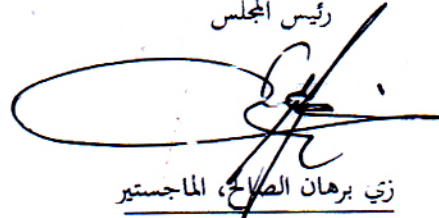 رئيس المجلس
زي برهان الصالح، الماجستير